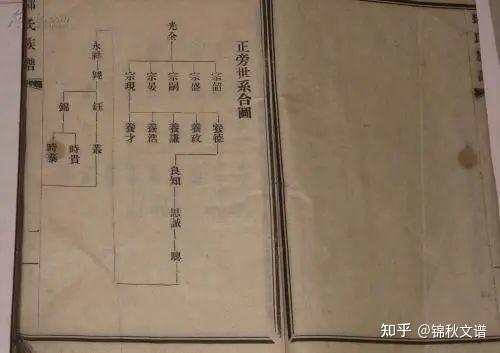 正旁世系合圖
光全
宗韶 宗盛 宗嗣 宗晏 宗現
養德 養政 養謙 養浩 養才
良知
思誠
聰
永祥
錢
鈺
叢
錦
時貴
時泰
氏族譜
知乎 @锦秋文谱